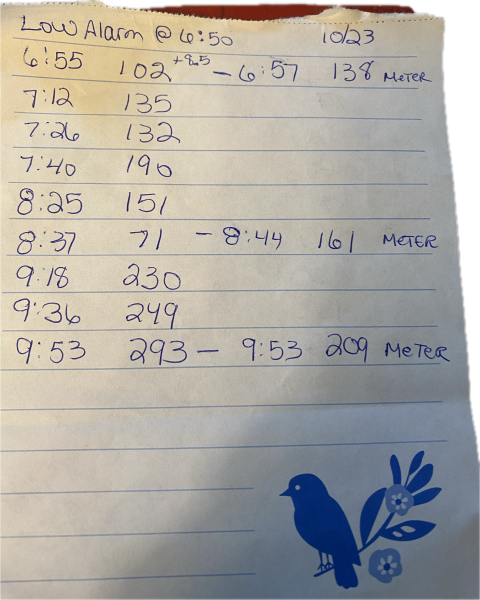 Low Alarm @ 6:50 10/23
6:55 102 +8.5 - 6:57 138 METER
7:12 135
7:26 132
7:40 190
8:25 151
8:37 71 - 8:44 161 METER
9:18 230
9:36 249
9:53 293 - 9:53 209 METER